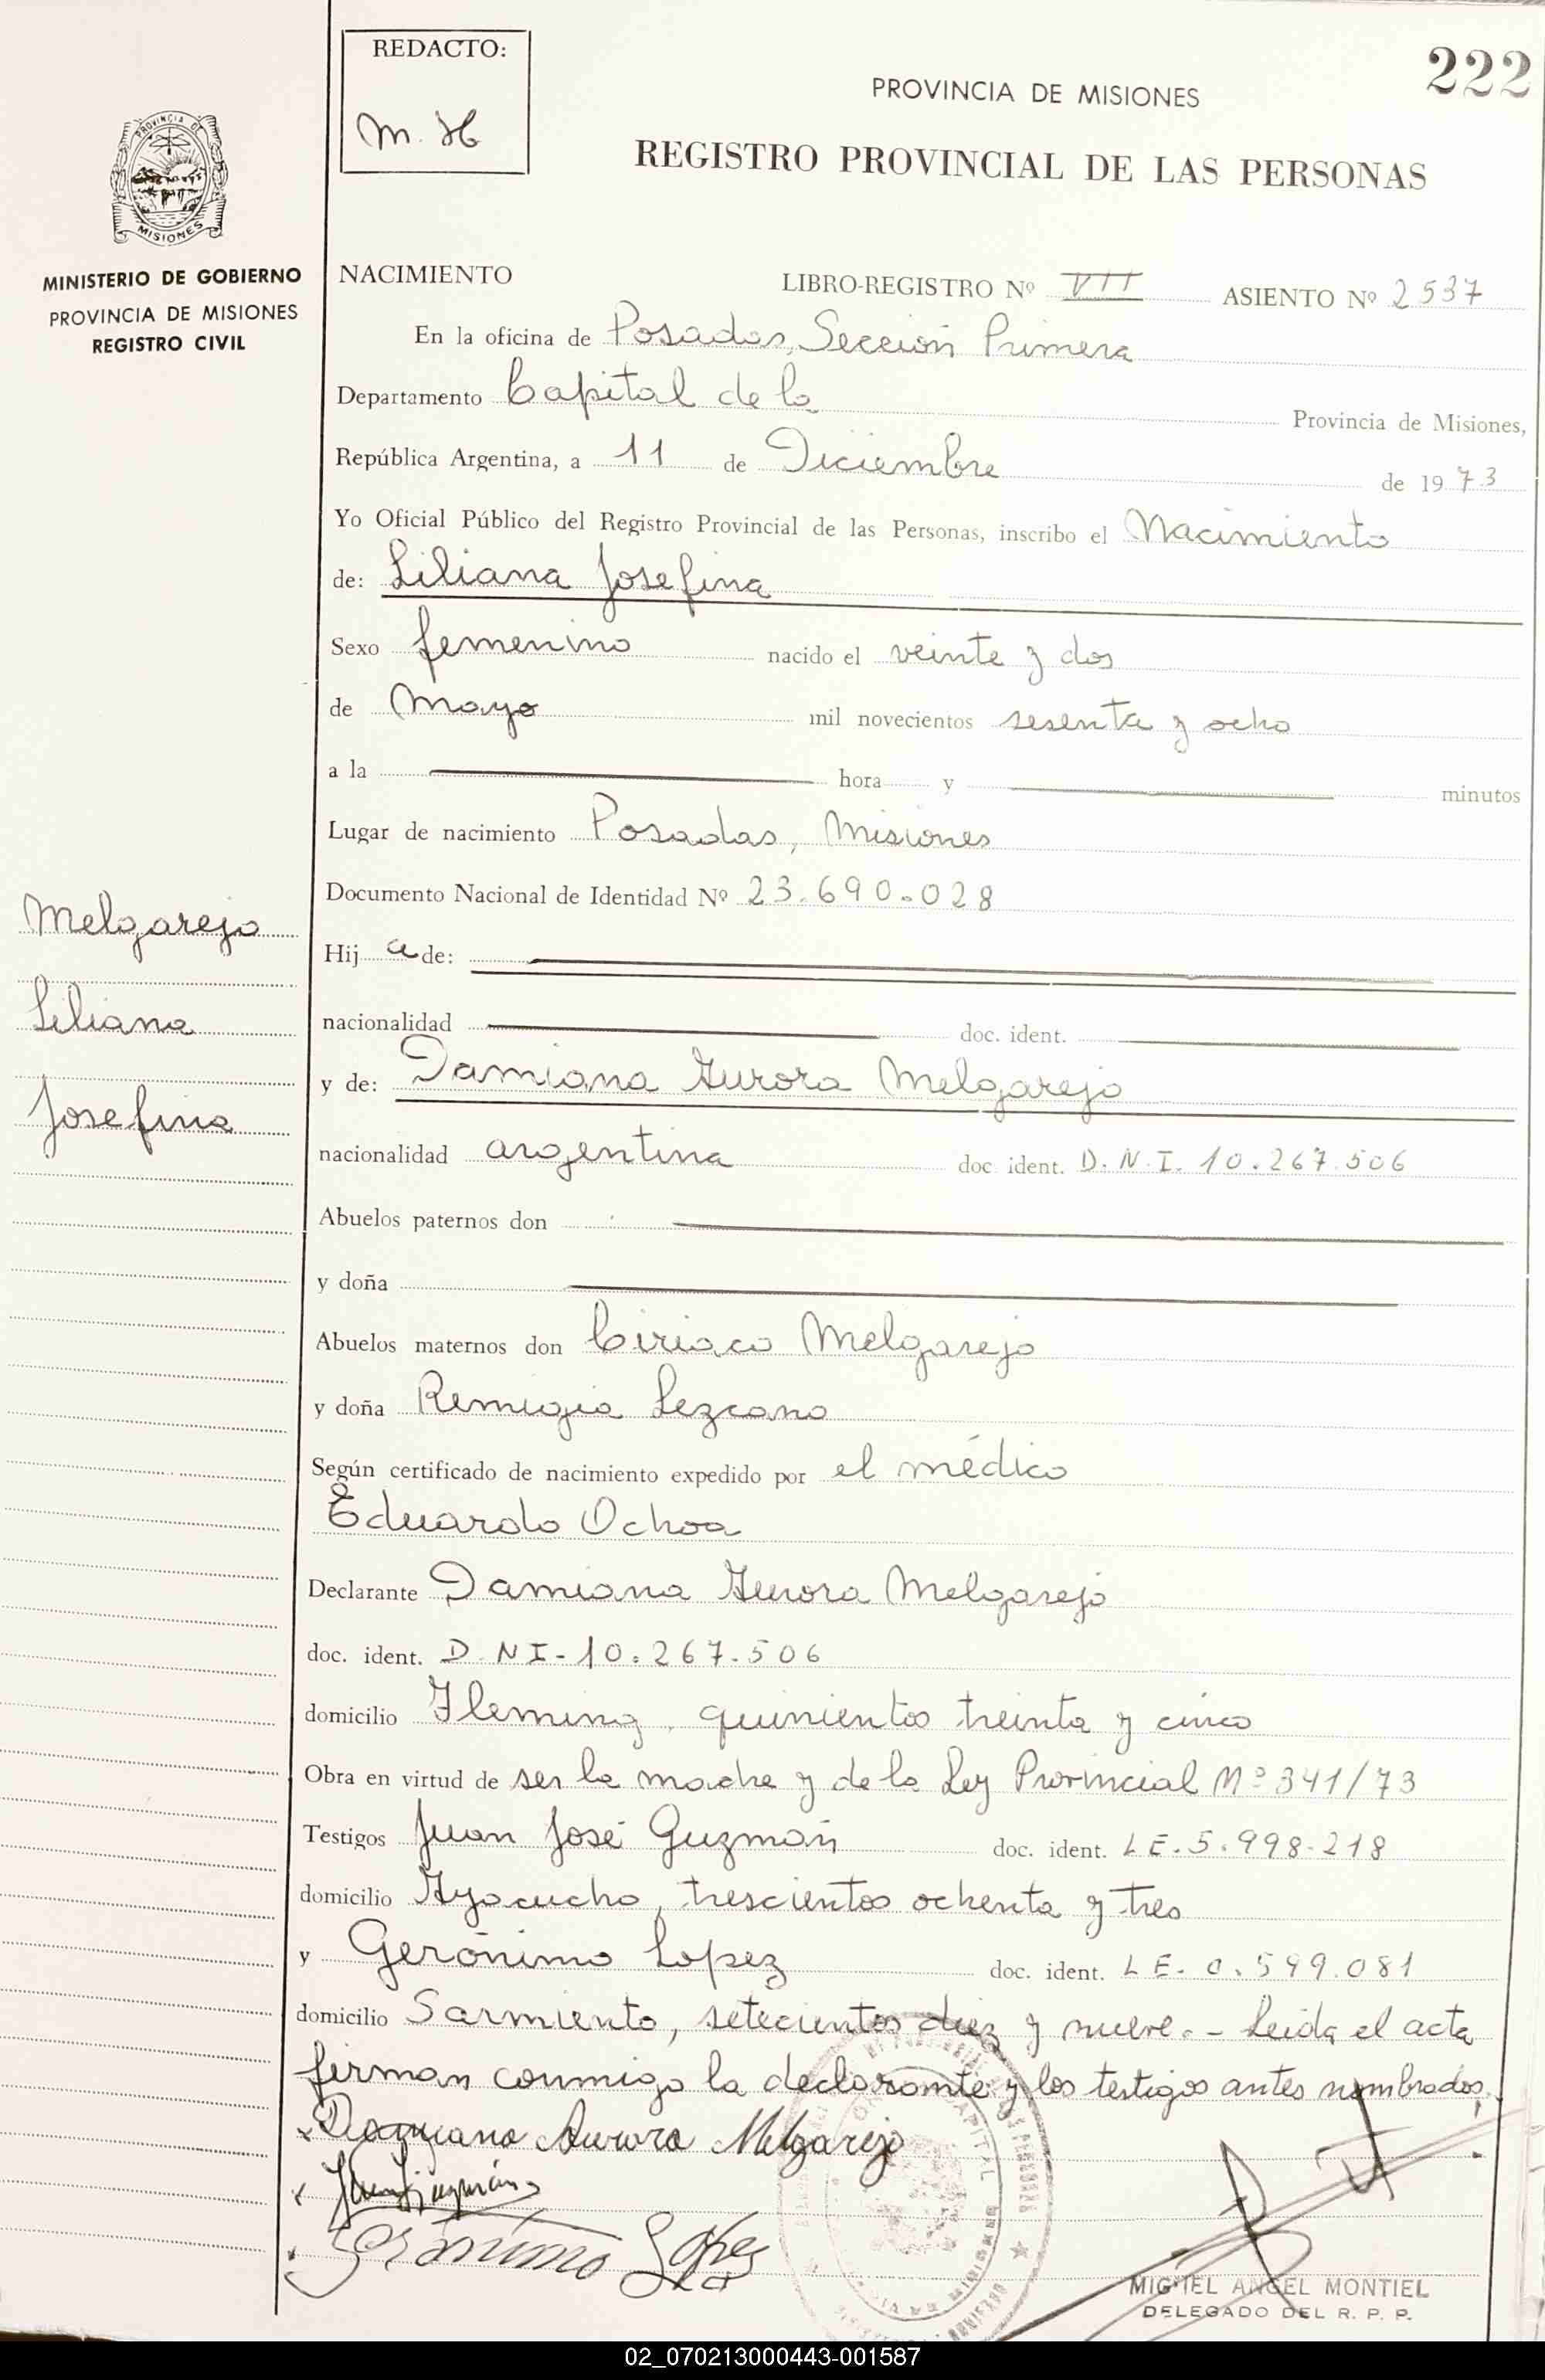 REDACTO:
M. H
222
PROVINCIA DE MISIONES
REGISTRO PROVINCIAL DE LAS PERSONAS
PROVINCIA DE
MISIONES
MINISTERIO DE GOBIERNO
PROVINCIA DE MISIONES
REGISTRO CIVIL
NACIMIENTO LIBRO-REGISTRO Nº VII ASIENTO Nº 2537
En la oficina de Posadas, Sección Primera
Departamento Capital de la Provincia de Misiones,
República Argentina, a 11 de Diciembre de 1973
Yo Oficial Público del Registro Provincial de las Personas, inscribo el Nacimiento
de: Liliana Josefina
Sexo femenino nacido el veinte y dos
de Mayo mil novecientos sesenta y ocho
a la hora y minutos
Lugar de nacimiento Posadas, Misiones
Documento Nacional de Identidad Nº 23.690.028
Melgarejo
Liliana
Josefina
Hij a de:
nacionalidad doc. ident.
y de: Damiana Aurora Melgarejo
nacionalidad argentina doc. ident. D.N.I. 10.267.506
Abuelos paternos don
y doña
Abuelos maternos don Ciriaco Melgarejo
y doña Remigia Lezcano
Según certificado de nacimiento expedido por el médico
Eduardo Ochoa
Declarante Damiana Aurora Melgarejo
doc. ident. D.NI-10.267.506
domicilio Fleming, quinientos treinta y cinco
Obra en virtud de ser la madre y de la Ley Provincial Nº 341/73
Testigos Juan José Guzmán doc. ident. LE.5.998-218
domicilio Ayacucho, trescientos ochenta y tres
y Gerónimo Lopez doc. ident. LE-0.599.081
domicilio Sarmiento, setecientos diez y nueve.- Leida el acta
firman conmigo la declarante y los testigos antes nombrados.
Damiana Aurora Melgarejo
Gerónimo Lopez
MIGUEL ANGEL MONTIEL
DELEGADO DEL R. P. P.
02_070213000443-001587